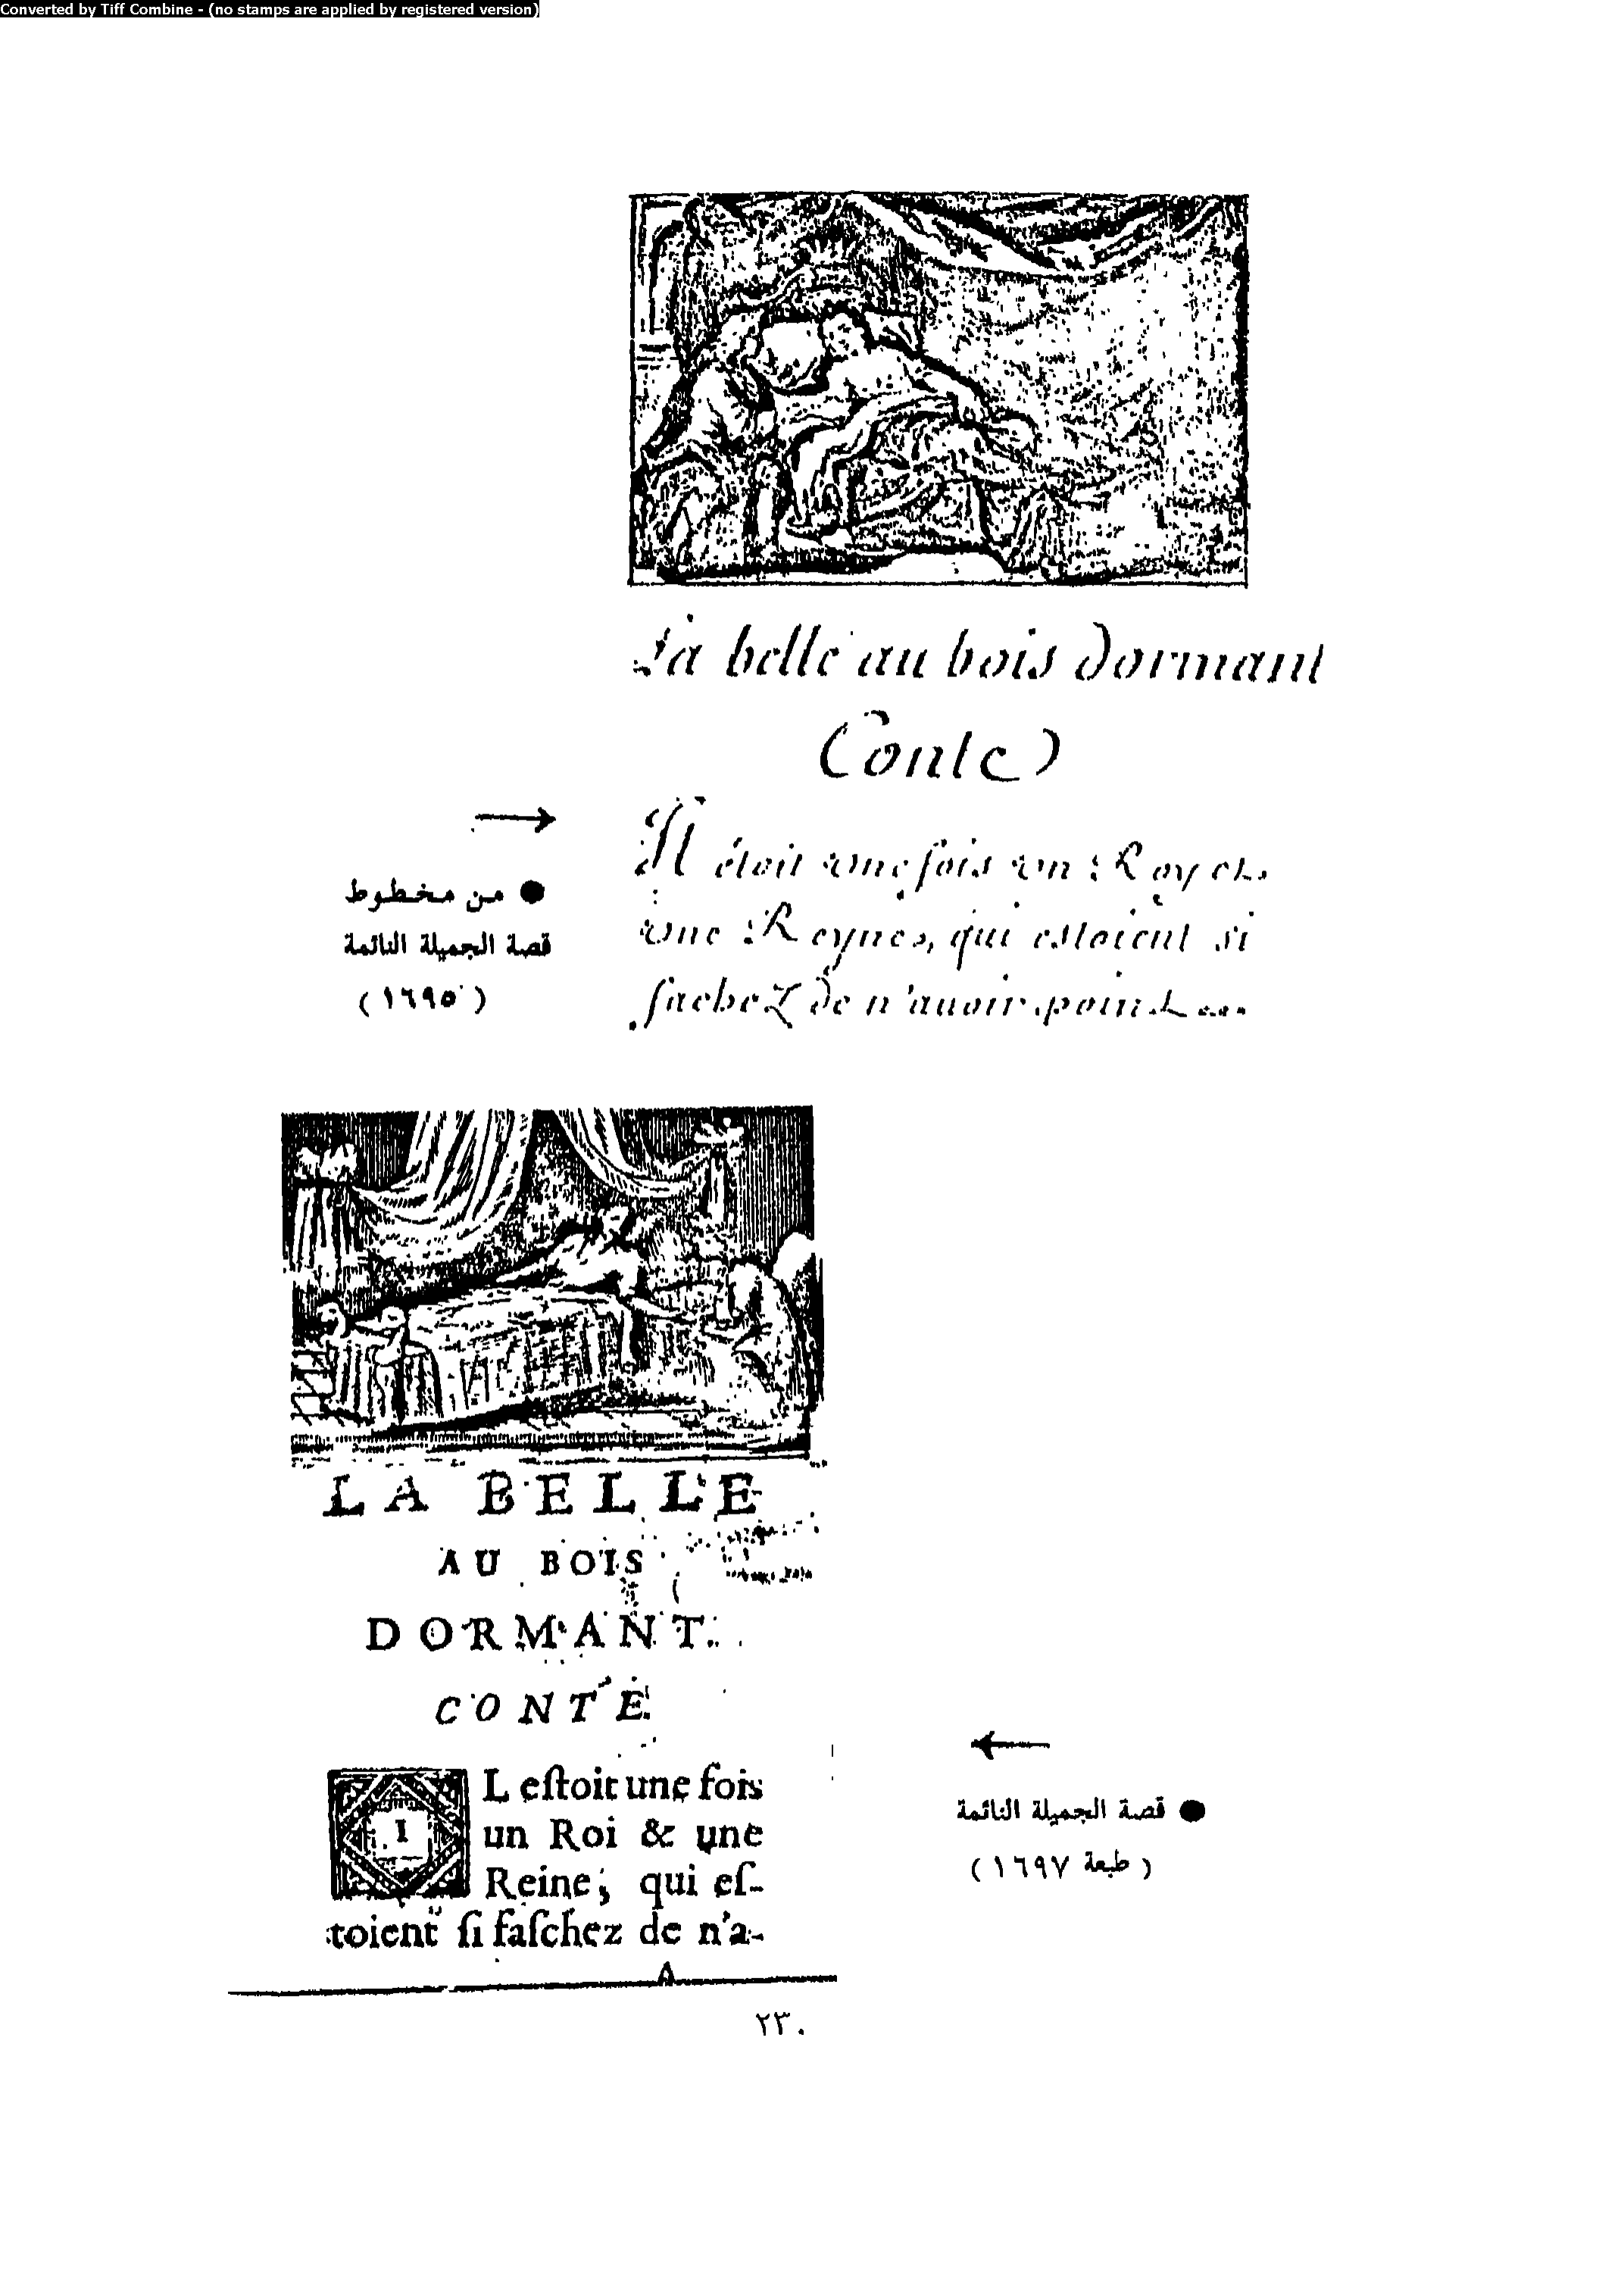 Converted by Tiff Combine - (no stamps are applied by registered version)
La belle au bois dormant
Conte
Il étoit une fois un Roy et
une Reyne, qui estoient si
fachez de n'auoir point ...
● من مخطوط
قصة الجميلة النائمة
(١٦٩٥)
LA BELLE
AU BOIS
DORMANT.
CONTE.
IL eſtoit une fois
un Roi & une
Reine, qui eſ-
toient ſi faſchez de n'a-
A
● قصة الجميلة النائمة
(طبعة ١٦٩٧)
٢٣٠